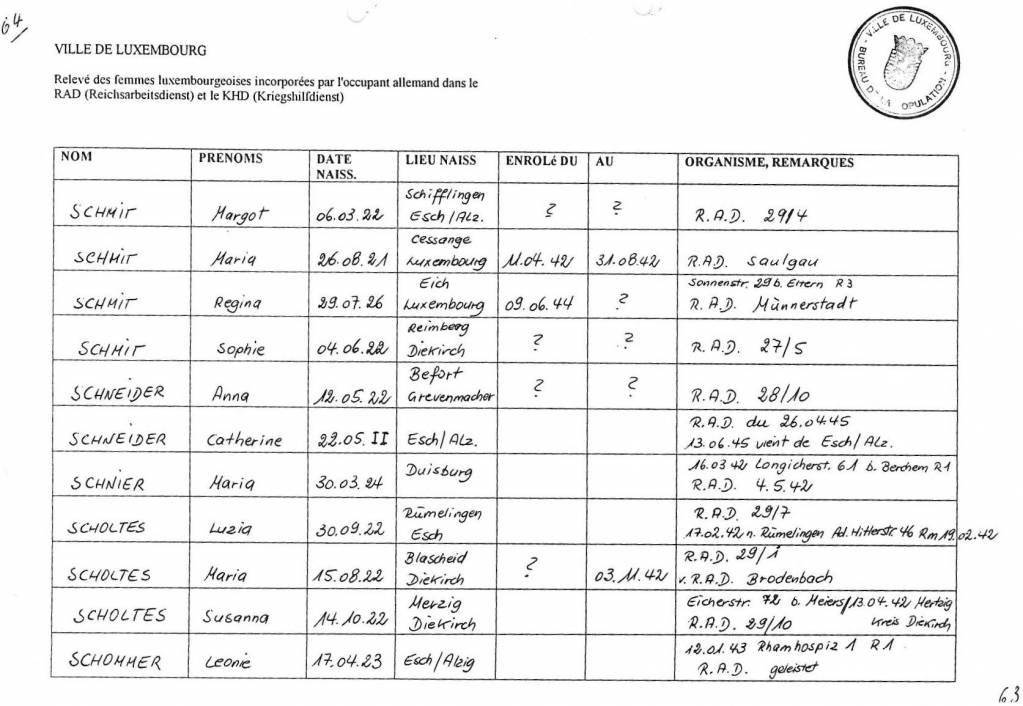 64/
VILLE DE LUXEMBOURG
Relevé des femmes luxembourgeoises incorporées par l'occupant allemand dans le
RAD (Reichsarbeitsdienst) et le KHD (Kriegshilfdienst)
VILLE DE LUXEMBOURG - BUREAU D LA OPULATION -
NOM PRENOMS DATE NAISS. LIEU NAISS ENROLé DU AU ORGANISME, REMARQUES
Schifflingen
SCHMIT Margot 06.03.22 Esch/Alz. ? ? R.A.D. 29/4
Cessange
SCHMIT Maria 26.08.21 Luxembourg 11.04.42 31.08.42 R.A.D. Saulgau
Eich Sonnenstr. 29 b. Eltern R3
SCHMIT Regina 29.07.26 Luxembourg 09.06.44 ? R.A.D. Münnerstadt
Reimberg
SCHMIT Sophie 04.06.22 Diekirch ? ? R.A.D. 27/5
Befort
SCHNEIDER Anna 12.05.22 Grevenmacher ? ? R.A.D. 28/10
R.A.D. du 26.04.45
SCHNEIDER Catherine 22.05.II Esch/Alz. 13.06.45 vient de Esch/Alz.
Duisburg 16.03 42 Longicherst. 61 b. Berchem R1
SCHNIER Maria 30.03.24 R.A.D. 4.5.42
Rümelingen R.A.D. 29/7
SCHOLTES Luzia 30.09.22 Esch 17.02.42 n. Rümelingen Ad. Hitlerstr. 46 Rm 19.02.42
Blascheid R.A.D. 29/1
SCHOLTES Maria 15.08.22 Diekirch ? 03.11.42 v. R.A.D. Brodenbach
Merzig Eicherstr. 72 b. Meiers/13.04.42 Hertzig
SCHOLTES Susanna 14.10.22 Diekirch R.A.D. 29/10 Kreis Diekirch
12.01.43 Rhamhospiz 1 R1
SCHOMMER Leonie 17.04.23 Esch/Alzig R.A.D. geleistet
63